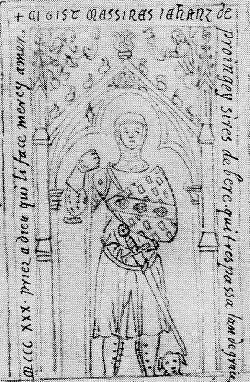 + CI GIST MASSIRES IAHANZ de
proingey sires de here. qui trespassa lan de grace
M CCC XXX. priez a dieu qui li face mercy amen.